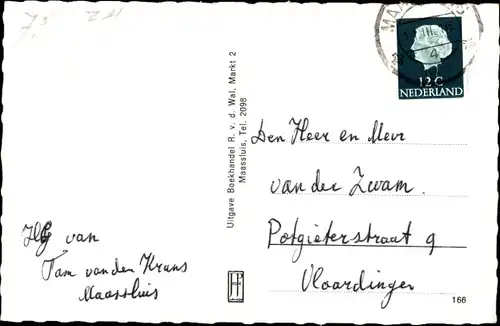 12C
NEDERLAND
Uitgave Boekhandel R. v. d. Wal, Markt 2
Maassluis, Tel. 2098
Den Heer en Mevr
van der Zwam.
Potgieterstraat 9
Vlaardingen
van
Tam van den Krans
Maassluis
166